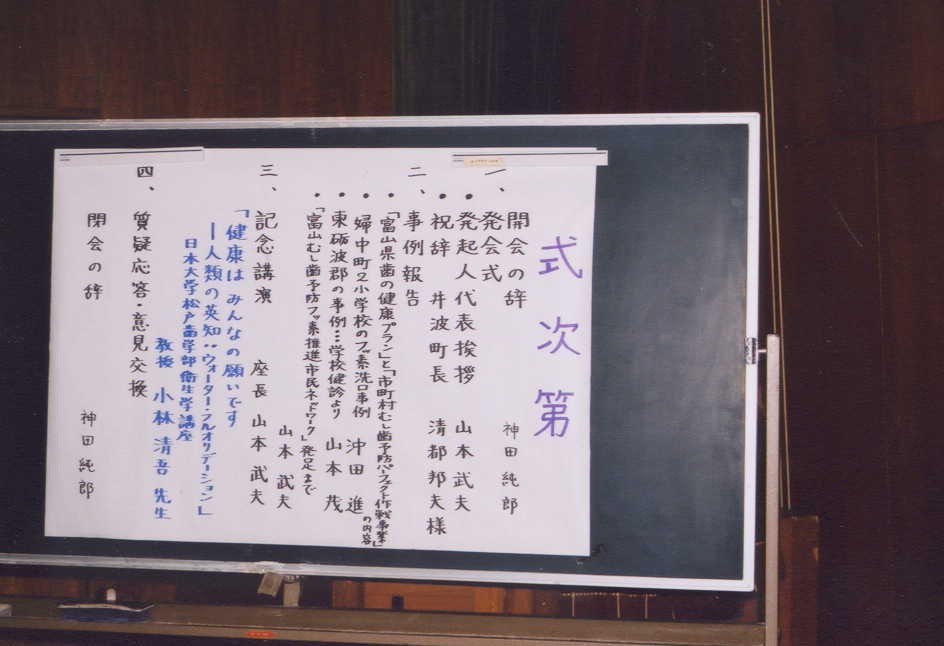 式次第
開会の辞　神田純郎
一、発会式
・発起人代表挨拶　山本武夫
・祝辞　井波町長　清都邦夫様
二、事例報告
・「富山県歯の健康プラン」と「市町村むし歯予防パーフェクト作戦事業」の内容
・婦中町2小学校のフッ素洗口事例　沖田進
・東砺波郡の事例…学校健診より　山本茂
・「富山むし歯予防フッ素推進市民ネットワーク」発足まで
山本武夫
三、記念講演　座長　山本武夫
「健康はみんなの願いです
ー人類の英知：ウォーター・フルオリデーション」
日本大学松戸歯学部衛生学講座
教授　小林清吾先生
四、質疑応答・意見交換
閉会の辞　神田純郎